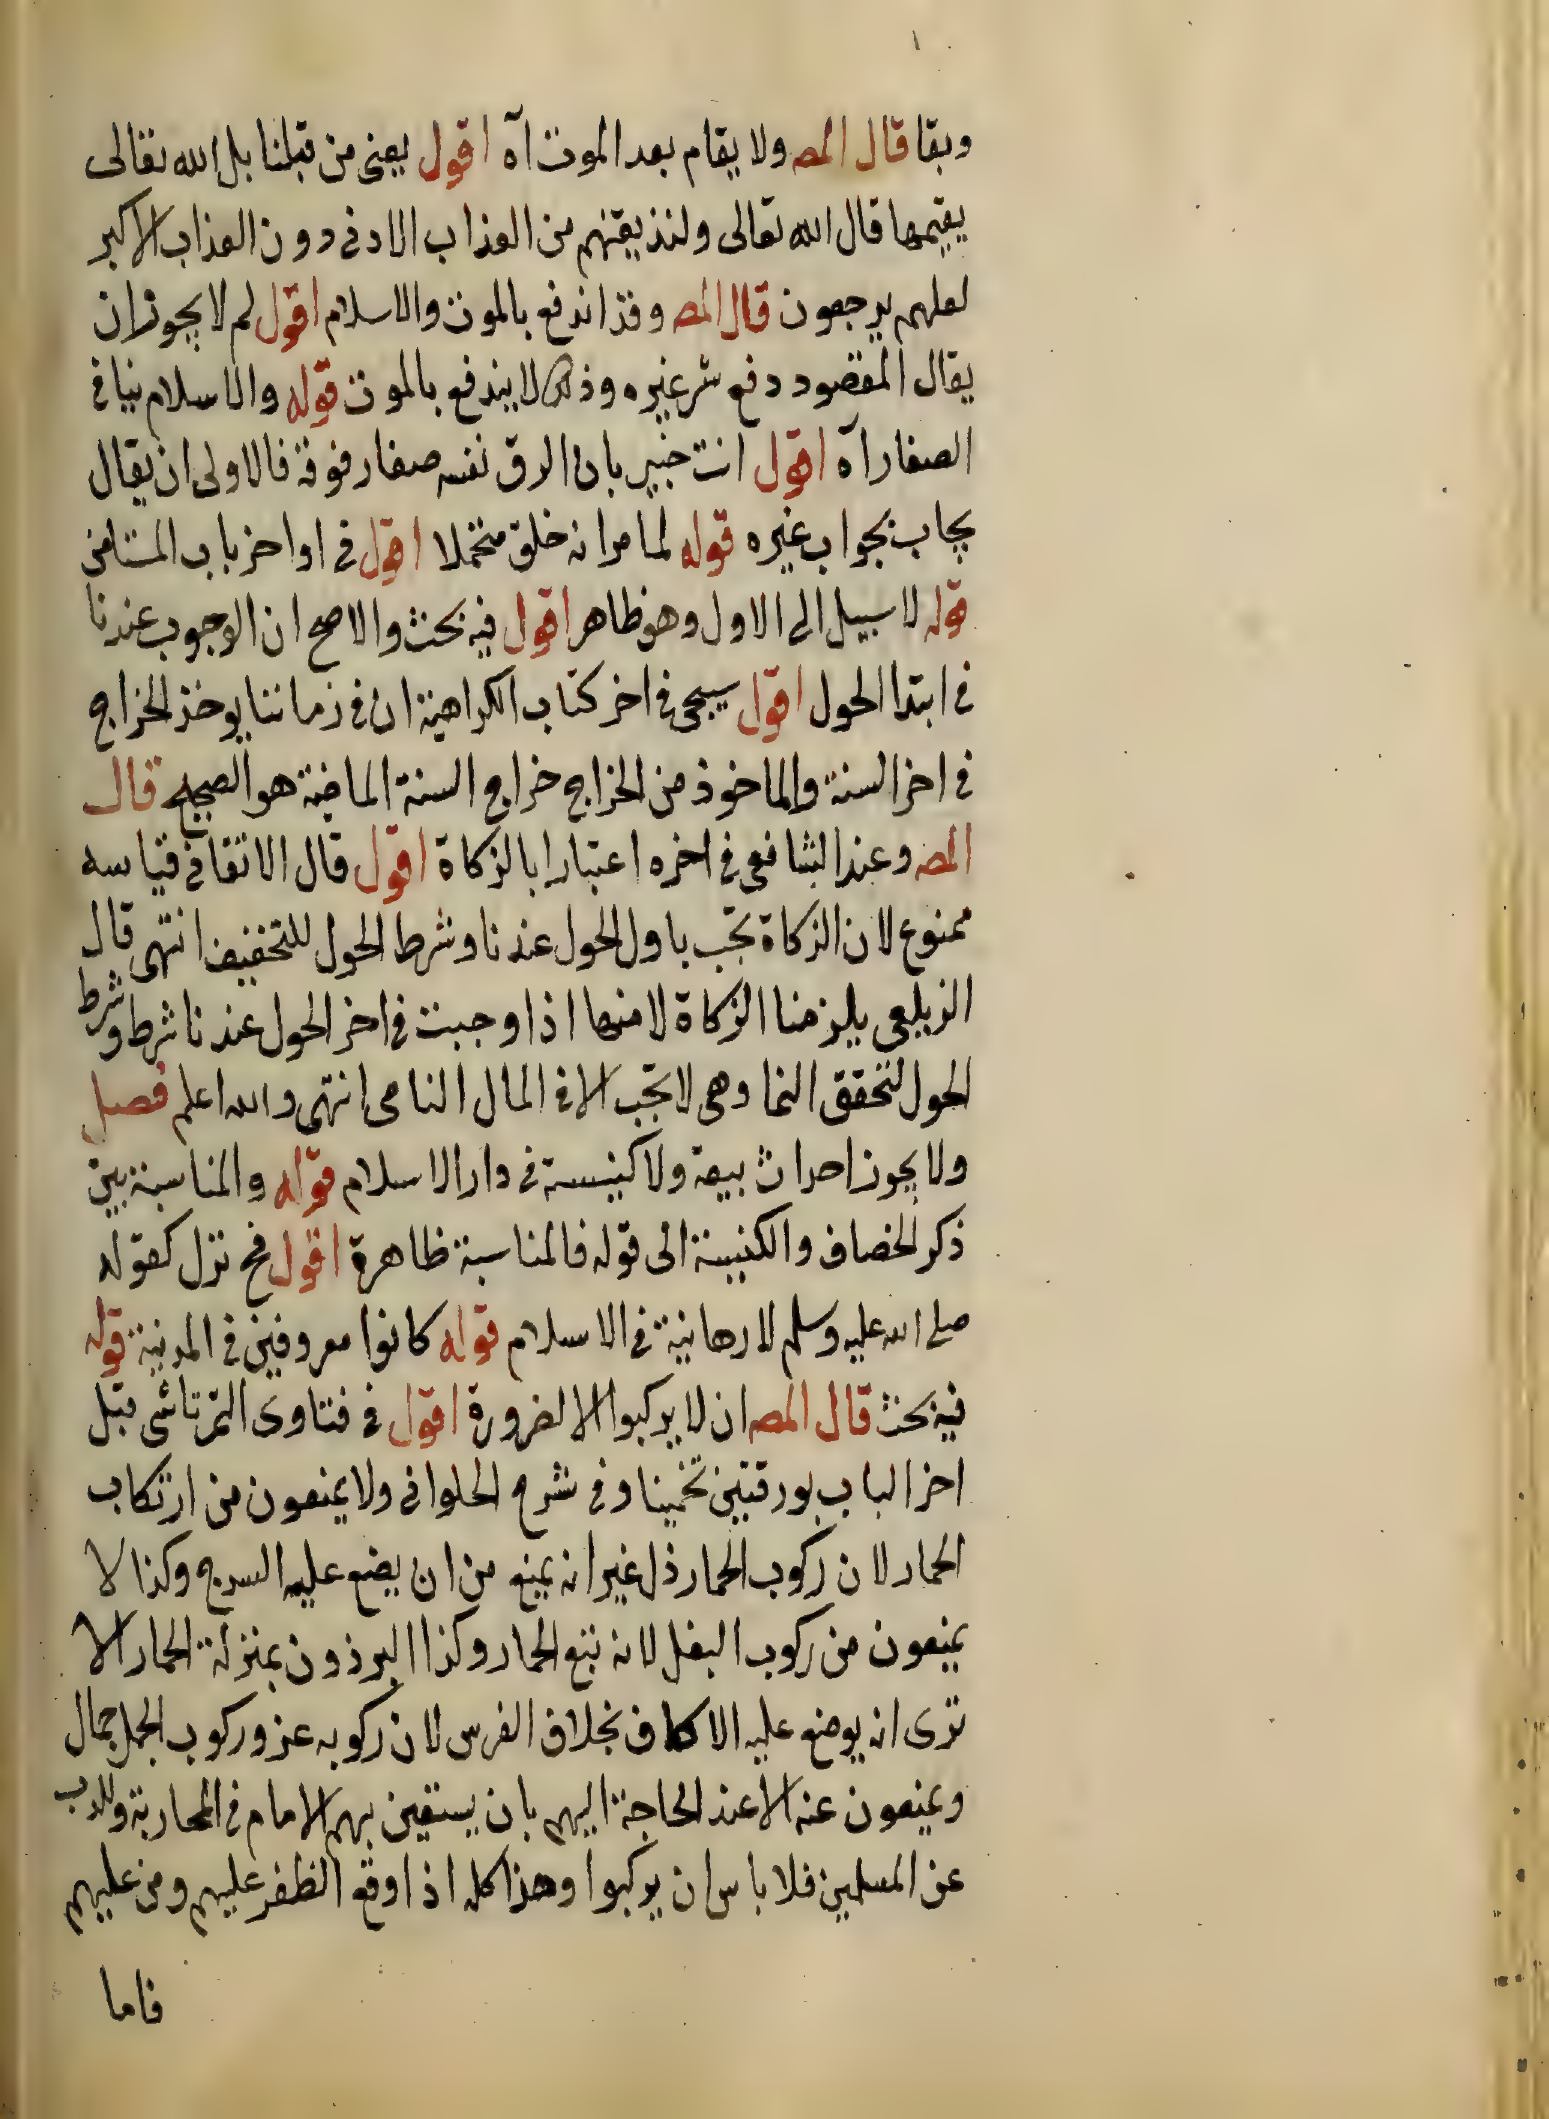 وبقا قال المصـ ولا يقام بعد الموت آه اقول يعني من قبلنا بل الله تعالى
يقيمها قال الله تعالى ولنذيقنهم من العذاب الادنى دون العذاب الاكبر
لعلهم يرجعون قال المصـ وقد اندفع بالموت والاسلام اقول لم لا يجوز ان
يقال المقصود دفع شر غيره وذلك لا يندفع بالموت قوله والاسلام ينافي
الصغار آه اقول انت خبير بان الرق نفسه صغار فوقه فالاولى ان يقال
يجاب بجواب غيره قوله لما مر انه خلق متحملا اقول في اواخر باب المستامن
قوله لا سبيل الى الاول وهو ظاهر اقول فيه بحث والاصح ان الوجوب عندنا
في ابتدا الحول اقول سيجى في اخر كتاب الكراهية ان في زماننا يوخذ الخراج
في اخر السنة والماخوذ من الخراج خراج السنة الماضية هو الصحيح قال
المصـ وعند الشافعي في اخره اعتبارا بالزكاة اقول قال الاتقاني قياسه
ممنوع لان الزكاة تجب باول الحول عندنا وشرط الحول للتخفيف انتهى قال
الزيلعي يلزمنا الزكاة لانها اذا وجبت في اخر الحول عندنا شرط وشرط
الحول لتحقق النما وهي لا تجب الا في المال النامي انتهى والله اعلم فصل
ولا يجوز احداث بيعة ولا كنيسة في دار الاسلام قوله والمناسبة بين
ذكر الخصاف والكنيسة الى قوله فالمناسبة ظاهرة اقول فح نزل كقوله
صلى الله عليه وسلم لا رهبانية في الاسلام قوله كانوا معروفين في المدينة قوله
فيه بحث قال المصـ ان لا يركبوا الا لضرورة اقول في فتاوى التمرتاشي قبل
اخر الباب بورقتين تخمينا وفي شرح الحلواني ولا يمنعون من ارتكاب
الحمار لان ركوب الحمار ذل غير انه يمنع من ان يضع عليه السرج وكذا لا
يمنعون من ركوب البغل لانه نتج الحمار وكذا البرذون بمنزلة الحمار الا
ترى انه يوضع عليه الاكاف بخلاف الفرس لان ركوبه عز وركوب الجمل جمال
ويمنعون عنه الا عند الحاجة اليهم بان يستعين بهم الامام في المحاربة وللذب
عن المسلمين فلا باس ان يركبوا وهذا كله اذا وقع الظفر عليهم ومن عليهم
فاما